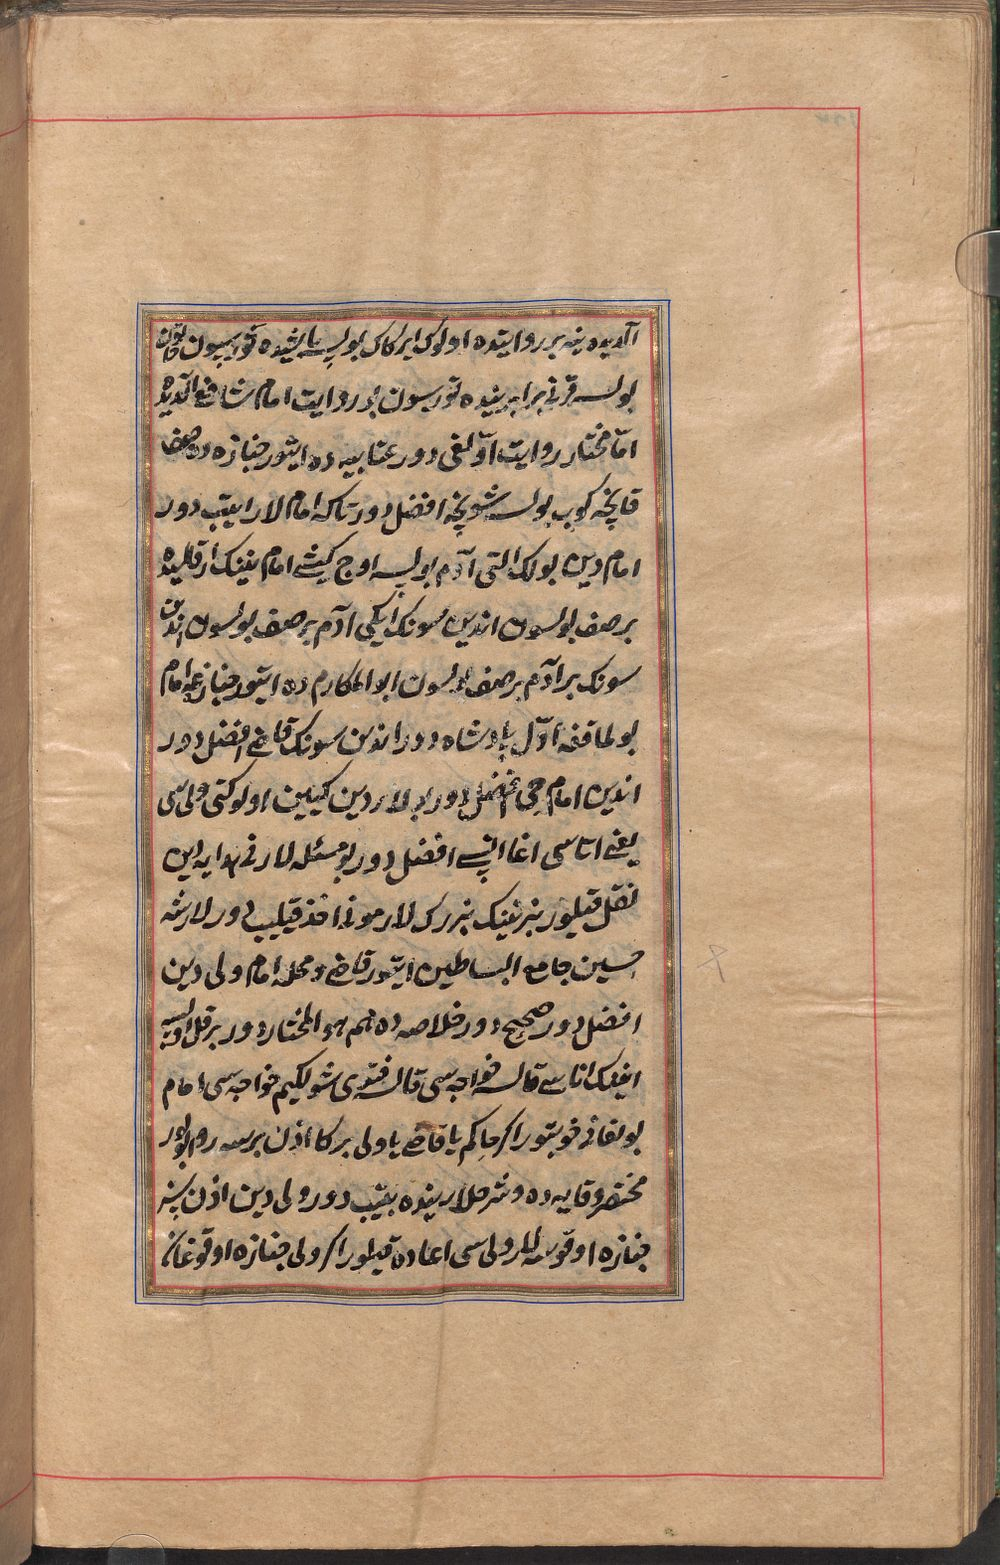 آلدیده ینه بر روایتده اولوک ایرکاک بولسه باشیده تورسون خاتون
بولسه قرنی برابرینده تورسون بو روایت امام شافعی آلدیده
امّا مختار روایت اوّلغی دور عتابیه ده ایتور جنازه ده صف
قانچه کوب بولسه شونچه افضل دور تاکه امام لار ایتیب دور
امام دین بولک التی آدم بولسه اوچ کیشی امام نینک ارقه‌لیده
بر صف بولسون اندین سونک ایکی آدم بر صف بولسون اندین
سونک بر آدم بر صف بولسون ابو المکارم ده ایتور جنازه غه امام
بولماققه اوّل پادشاه دور اندین سونک قاضی افضل دور
اندین امام حی افضل دور بولاردین کیین اولوکنی ولی سی
یعنی اتاسی اغا انیسی افضل دور بو مسئله لارنی هدایه دین
نقل قیلور بزنینک بزرک لار مونی اخذ قیلیب دورلار شه
حسین جامع البساطین ایتور قاضی و محله امام ولی دین
افضل دور صحیح دور خلاصه ده هم هو المختار دور بر قل اولسه
انینک اناسی قاله خواجه سی قاله فتوی شولکیم خواجه سی امام
بولغانی خوبتور اکر حاکم یا قاضی یا ولی برکا اذن برسه روا بولور
مختصر وقایه ده و شرحلارینده بیتیب دور ولی دین اذن سیز
جنازه اوقوسه لار ولی سی اعاده قیلور اکر ولی جنازه اوقوغان